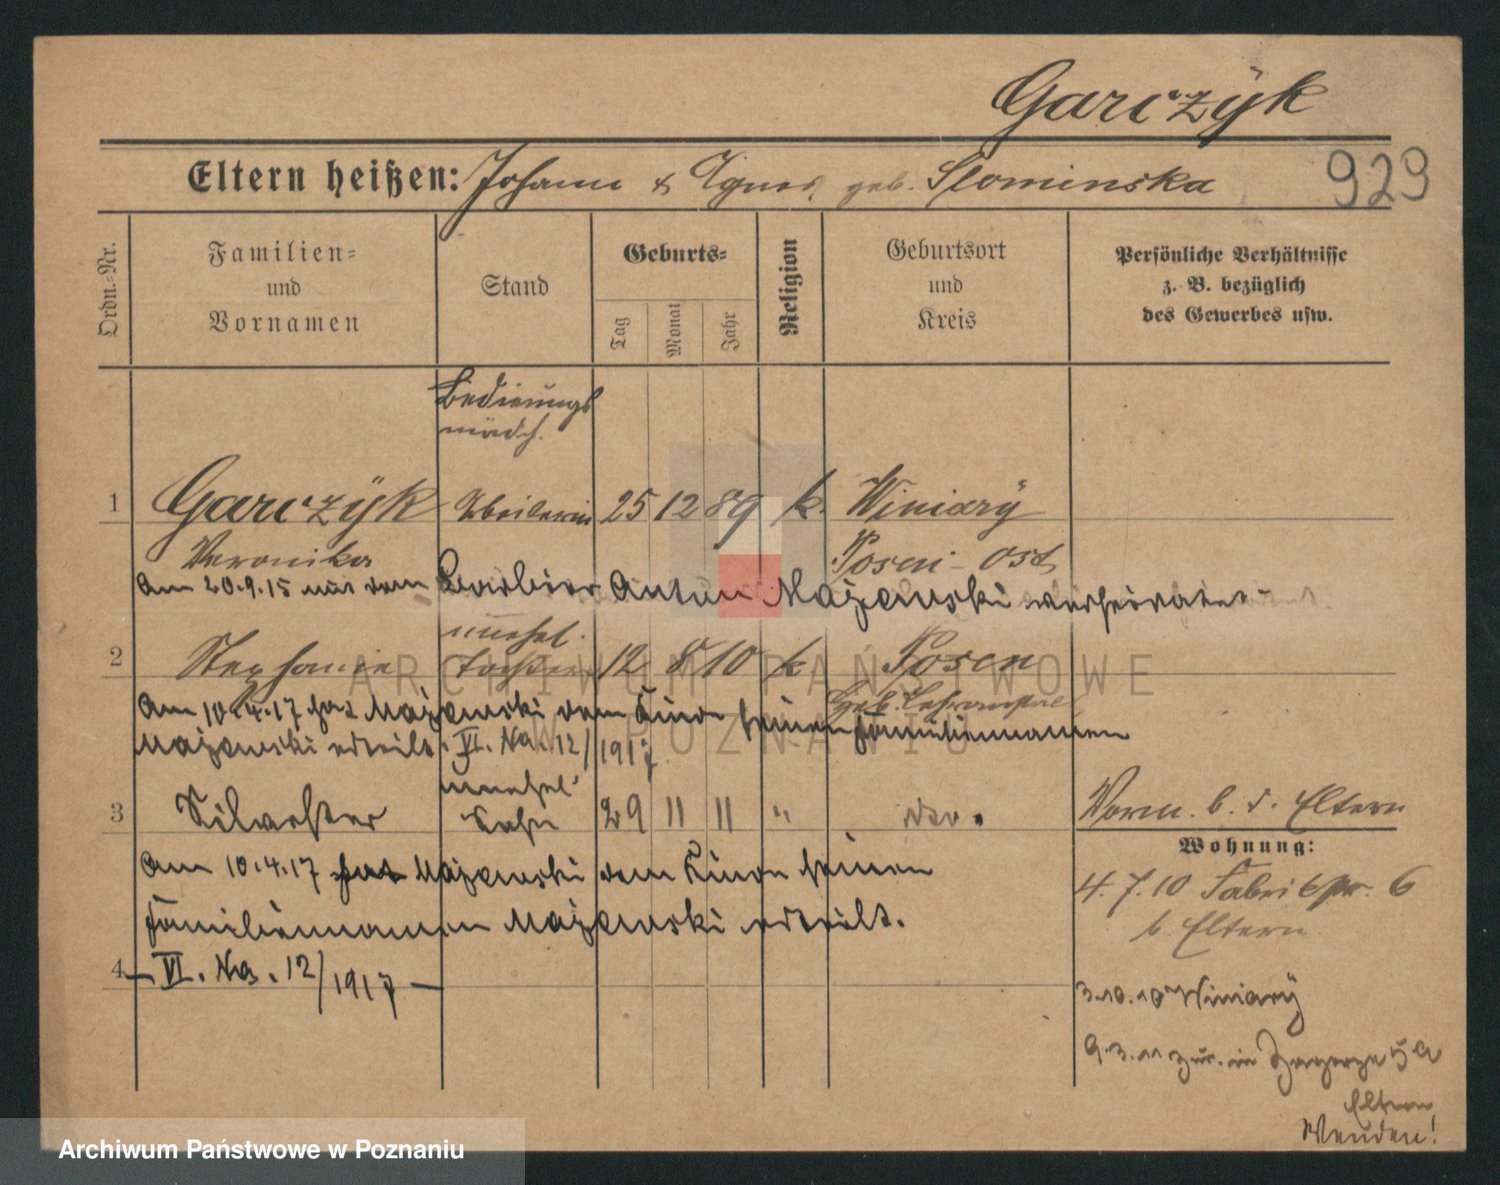 Garczÿk
929
Eltern heißen: Johann & Agnes geb. Slominska
Ordn.=Nr.
Familien=
und
Vornamen
Stand
Geburts=
Tag
Monat
Jahr
Religion
Geburtsort
und
Kreis
Persönliche Verhältnisse
z. B. bezüglich
des Gewerbes usw.
Bedienungs
mädch.
1 Garczÿk Arbeiterin 25 12 89 k. Winiarÿ
Veronika Posen-Ost
Am 20.9.15 mit dem Barbier Anton Majewski verheiratet
unehel.
2 Stephanie Tochter 12 8 10 k Posen
Am 10.4.17 hat Majewski dem Kinde seinen Familiennamen
Majewski erteilt. VI. No. 12/1917
unehel.
3 Silvester Sohn 29 11 11 " do.
Am 10.4.17 hat Majewski dem Kinde seinen
Familiennamen Majewski erteilt.
4 – VI. No. 12/1917 –
Vorm. b. d. Eltern
Wohnung:
4.7.10 Fabrikstr. 6
b. Eltern
3.10.10 Winiarÿ
9.3.11 zur. in 5a
Eltern
Wenden!
ARCHIWUM PAŃSTWOWE
W POZNANIU
Archiwum Państwowe w Poznaniu